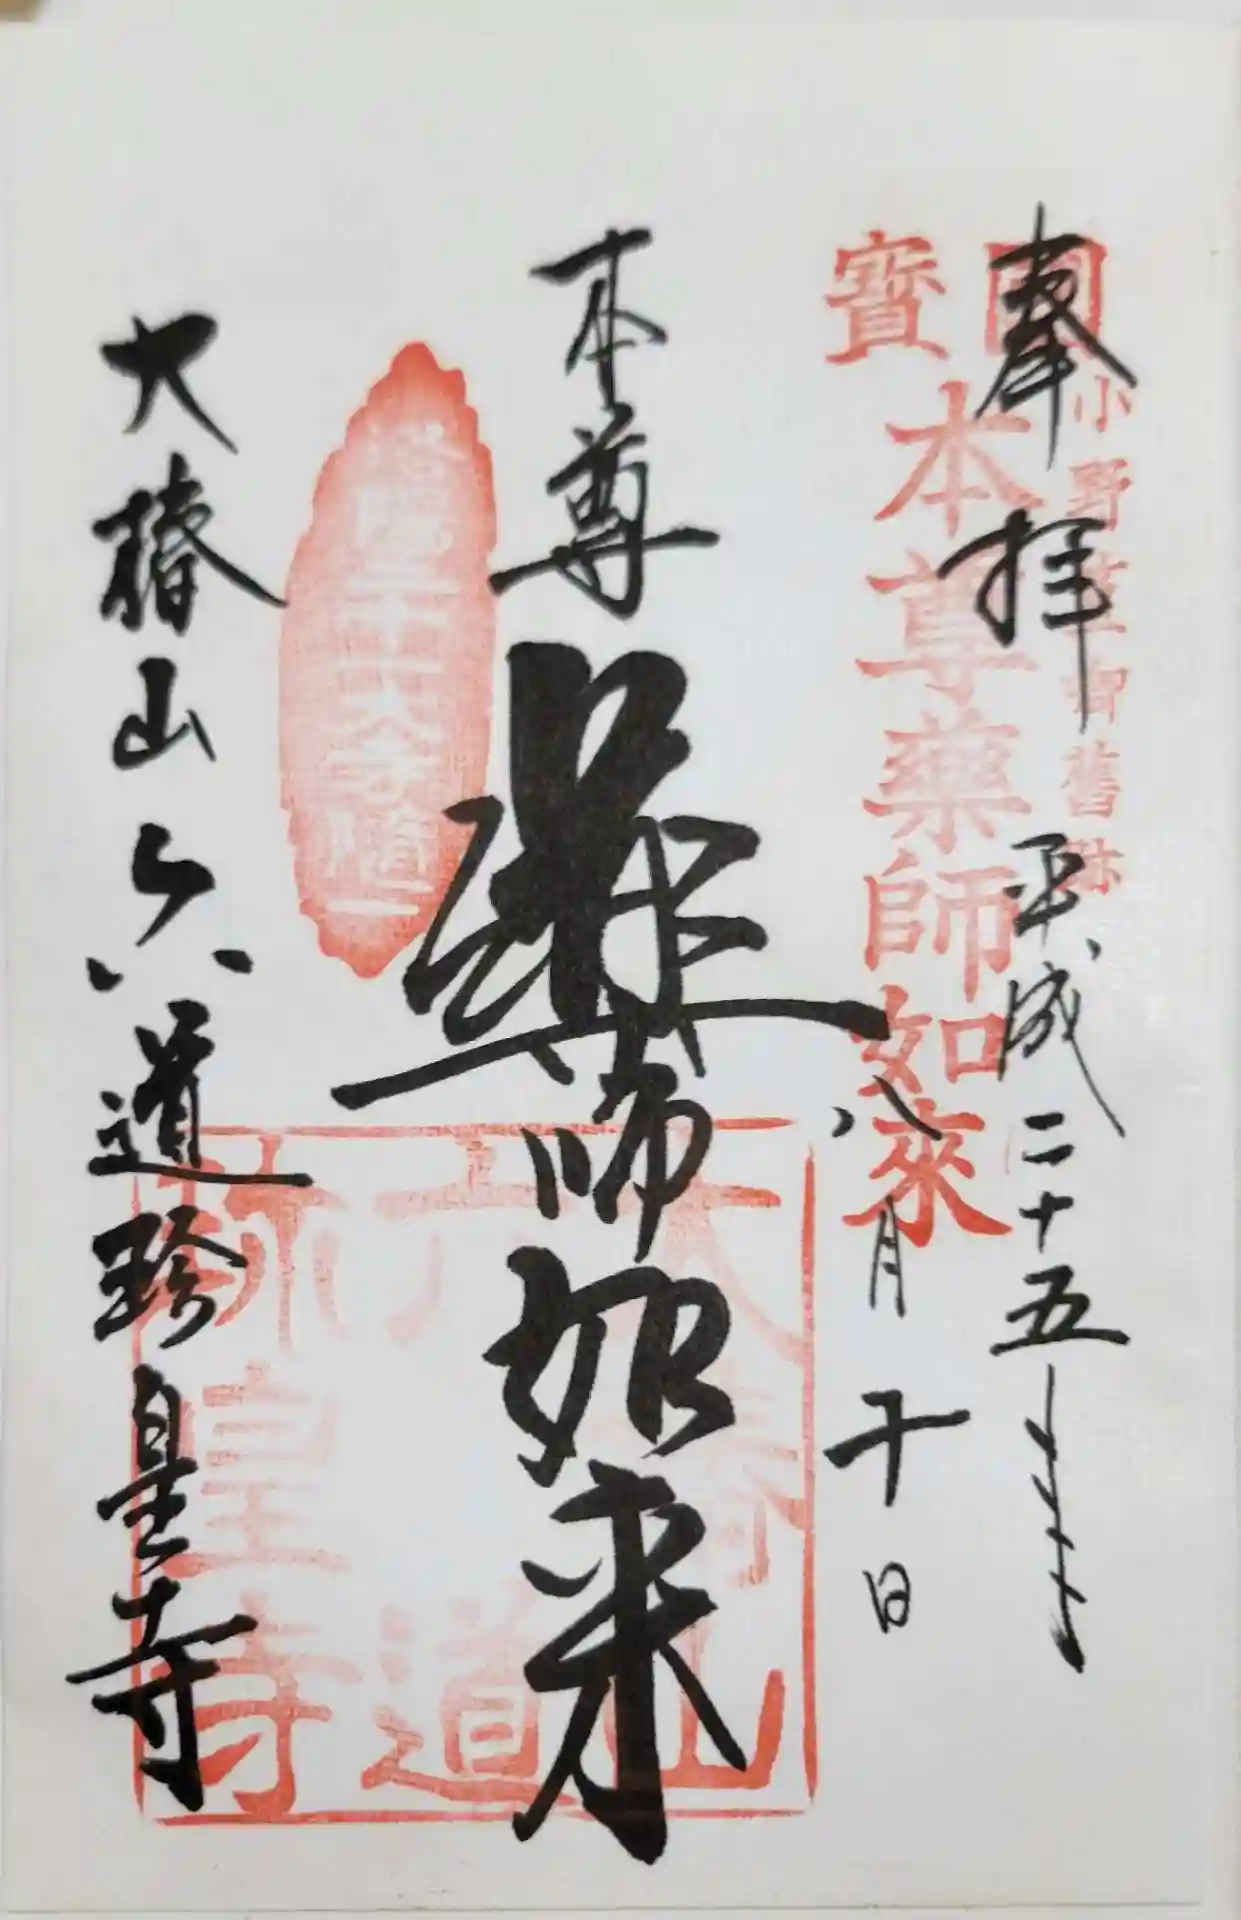 奉拝
平成二十五年
八月十日
小野篁卿舊跡
國寶
本尊薬師如來
本尊
薬師如来
大椿山六道珍皇寺
大椿山
六道
珍皇寺